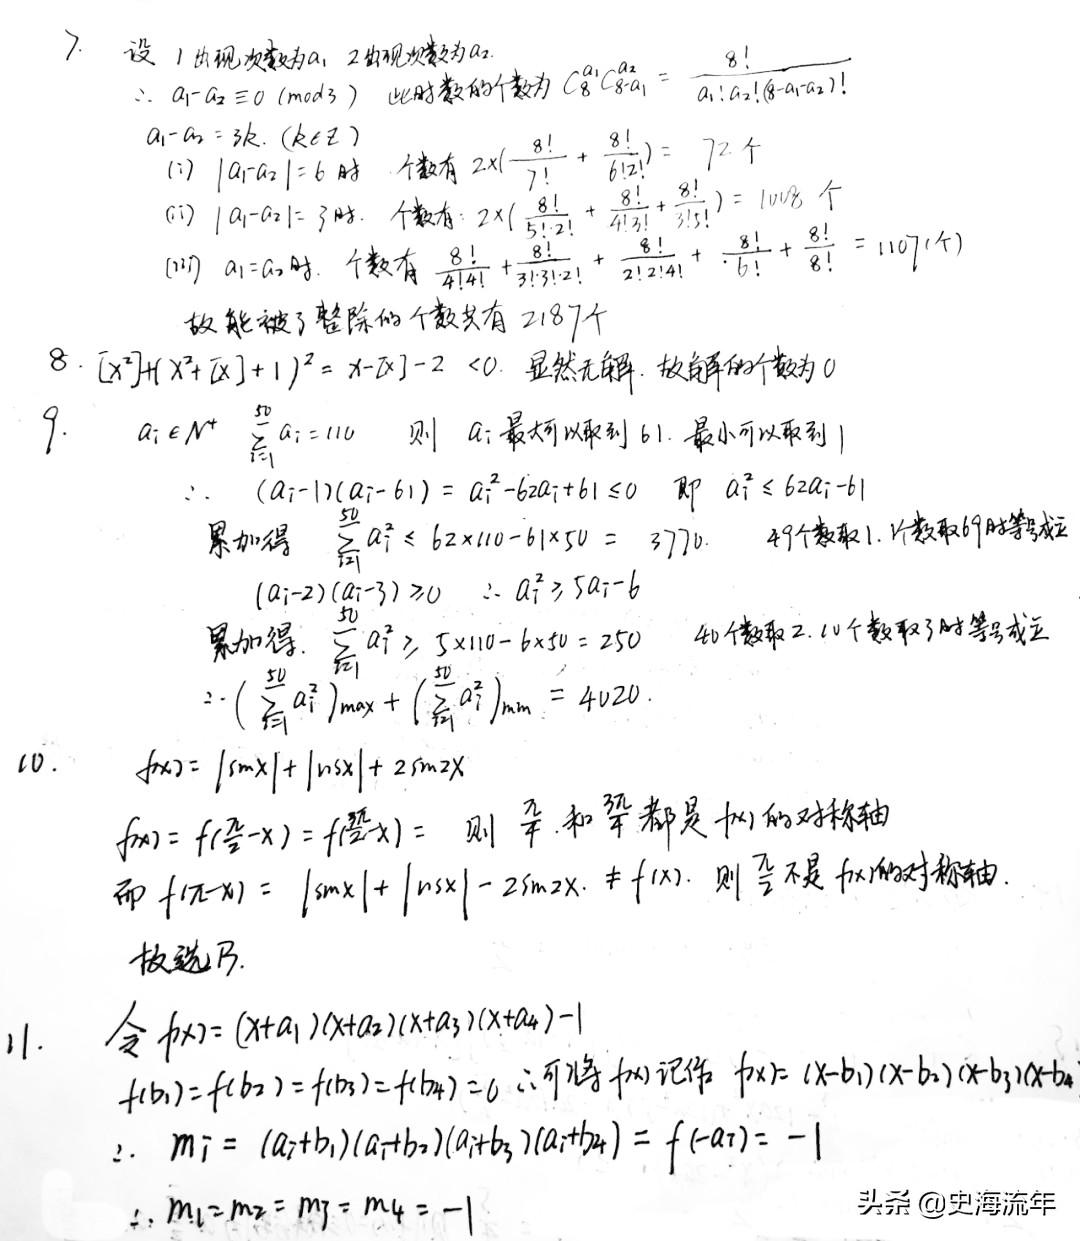 7. 设 1出现次数为a₁ 2出现次数为a₂.
∴ a₁-a₂≡0 (mod3) 此时数的个数为 C₈^{a₁}C_{8-a₁}^{a₂} = 8!/(a₁!a₂!(8-a₁-a₂)!)
a₁-a₂=3k. (k∈Z)
(i) |a₁-a₂|=6时 个数有 2×(8!/7! + 8!/(6!2!)) = 72个
(ii) |a₁-a₂|=3时. 个数有: 2×(8!/(5!·2!) + 8!/(4!3!) + 8!/(3!5!)) = 1008个
(iii) a₁=a₂时. 个数有 8!/(4!4!) + 8!/(3!·3!·2!) + 8!/(2!2!4!) + 8!/6! + 8!/8! = 1107(个)
故能被3整除的个数共有2187个
8. [x²]+(x²+[x]+1)² = x-[x]-2 <0. 显然无解. 故解的个数为0
9. aᵢ∈N⁺ ∑_{i=1}^{50} aᵢ=110 则 aᵢ最大可以取到61. 最小可以取到1
∴ (aᵢ-1)(aᵢ-61) = aᵢ²-62aᵢ+61≤0 即 aᵢ²≤62aᵢ-61
累加得 ∑_{i=1}^{50} aᵢ² ≤ 62×110-61×50 = 3770. 49个数取1. 1个数取69时等号成立
(aᵢ-2)(aᵢ-3)≥0 ∴ aᵢ²≥5aᵢ-6
累加得. ∑_{i=1}^{50} aᵢ² ≥ 5×110-6×50=250 40个数取2. 10个数取3时等号成立
∴ (∑_{i=1}^{50} aᵢ²)max + (∑_{i=1}^{50} aᵢ²)min = 4020.
10. f(x)=|sinx|+|cosx|+2sin2x
f(x)=f(π/2-x)=f(3π/2-x)= 则 π/4 和 3π/4 都是f(x)的对称轴
而 f(π-x)= |sinx|+|cosx|-2sin2x. ≠f(x). 则 π/2 不是f(x)的对称轴.
故选B.
11. 令 f(x)=(x+a₁)(x+a₂)(x+a₃)(x+a₄)-1
f(b₁)=f(b₂)=f(b₃)=f(b₄)=0 ∴可将f(x)记作 f(x)=(x-b₁)(x-b₂)(x-b₃)(x-b₄
∴ mᵢ = (aᵢ+b₁)(aᵢ+b₂)(aᵢ+b₃)(aᵢ+b₄) = f(-aᵢ) = -1
∴ m₁=m₂=m₃=m₄=-1
头条 @史海流年